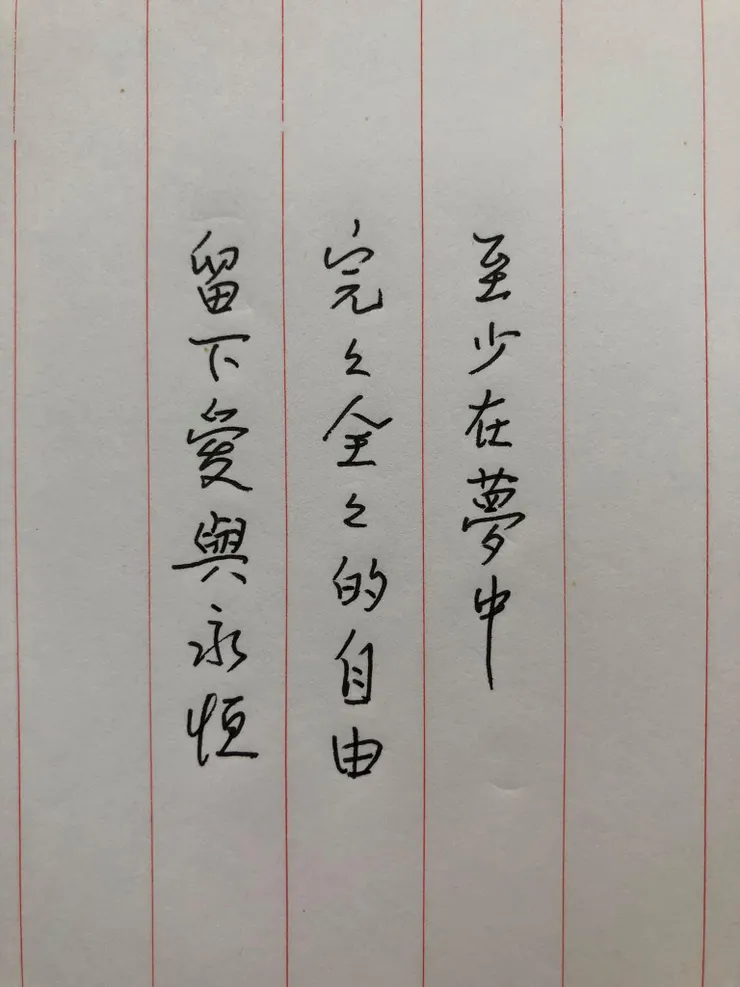 至少在夢中
完々全々的自由
留下愛與永恒